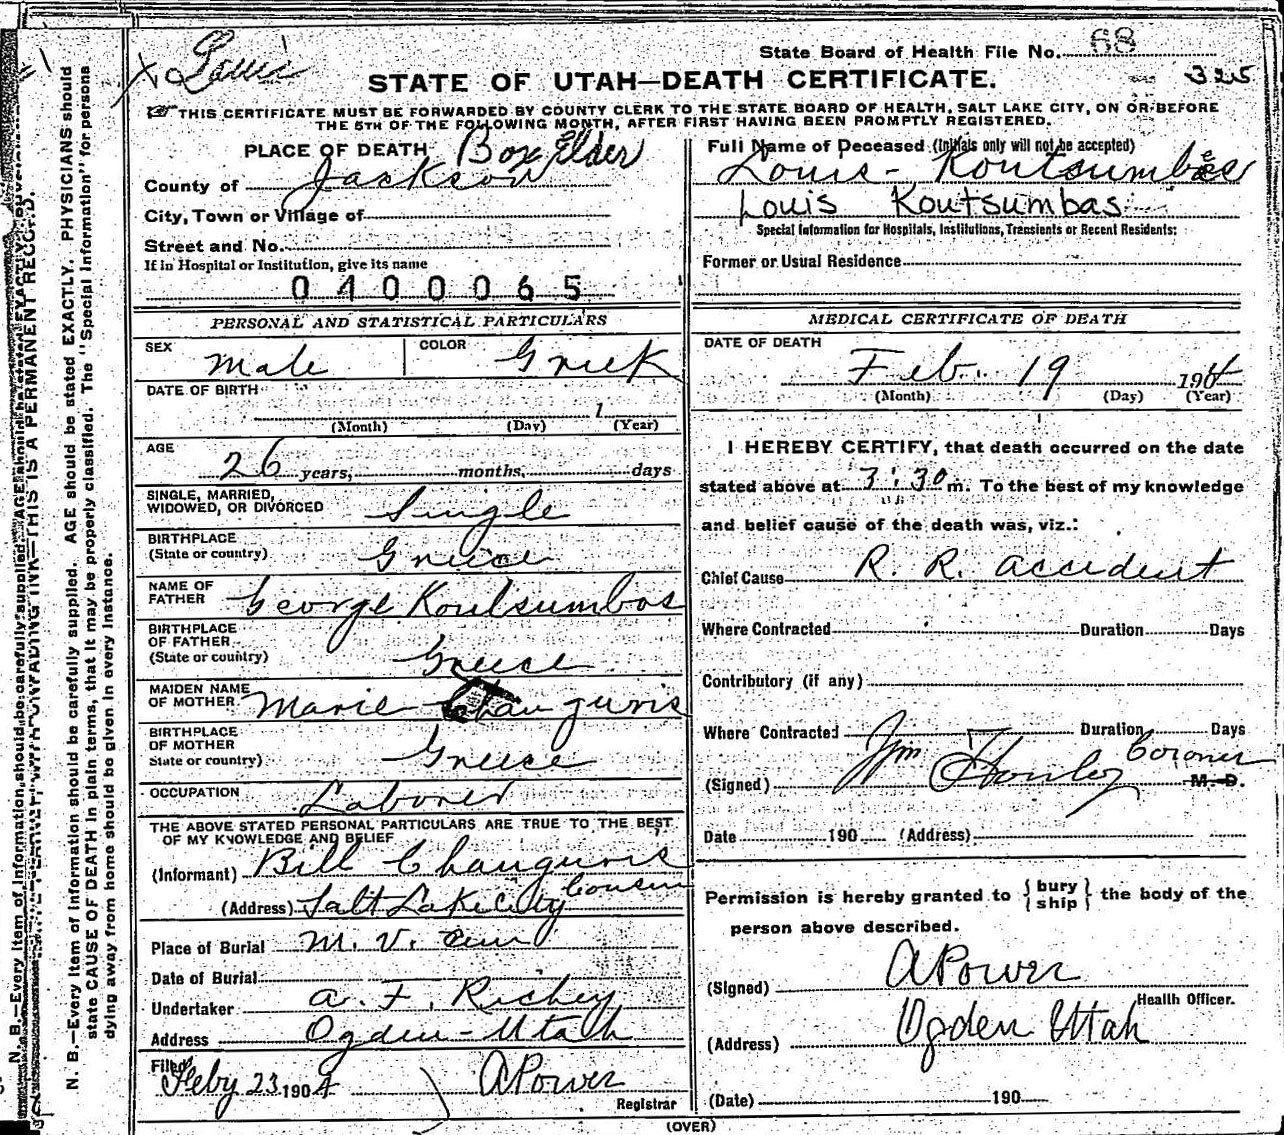 Louis
State Board of Health File No. 68
325
STATE OF UTAH—DEATH CERTIFICATE.
THIS CERTIFICATE MUST BE FORWARDED BY COUNTY CLERK TO THE STATE BOARD OF HEALTH, SALT LAKE CITY, ON OR BEFORE
THE 5TH OF THE FOLLOWING MONTH, AFTER FIRST HAVING BEEN PROMPTLY REGISTERED.
PLACE OF DEATH Box Elder
County of Jackson
City, Town or Village of
Street and No.
If in Hospital or Institution, give its name
0400065
Full Name of Deceased (Initials only will not be accepted)
Louis - Koutsumbas
Louis Koutsumbas
Special Information for Hospitals, Institutions, Transients or Recent Residents:
Former or Usual Residence
PERSONAL AND STATISTICAL PARTICULARS
SEX Male COLOR Greek
DATE OF BIRTH
1
(Month) (Day) (Year)
AGE
26 years, months, days
SINGLE, MARRIED,
WIDOWED, OR DIVORCED Single
BIRTHPLACE
(State or country) Greece
NAME OF
FATHER George Koutsumbas
BIRTHPLACE
OF FATHER
(State or country) Greece
MAIDEN NAME
OF MOTHER Marie Changuris
BIRTHPLACE
OF MOTHER
State or country) Greece
OCCUPATION Laborer
THE ABOVE STATED PERSONAL PARTICULARS ARE TRUE TO THE BEST
OF MY KNOWLEDGE AND BELIEF
(Informant) Bill Changuris
Cousin
(Address) Salt Lake City
Place of Burial M. V. Cem
Date of Burial
Undertaker A. F. Richey
Address Ogden - Utah
Filed Feby 23 1904 APower
Registrar
MEDICAL CERTIFICATE OF DEATH
DATE OF DEATH
Feb. 19 1904
(Month) (Day) (Year)
I HEREBY CERTIFY, that death occurred on the date
stated above at 3:30 m. To the best of my knowledge
and belief cause of the death was, viz.:
Chief Cause R. R. accident
Where Contracted Duration Days
Contributory (if any)
Where Contracted Duration Days
(Signed) Wm Coroner M. D.
Date 190 (Address)
Permission is hereby granted to { bury
ship } the body of the
person above described.
(Signed) APower
Health Officer.
(Address) Ogden Utah
(Date) 190
(OVER)
N. B.—Every item of information should be carefully supplied. AGE should be stated EXACTLY. PHYSICIANS should
state CAUSE OF DEATH in plain terms, that it may be properly classified. The "Special Information" for persons
dying away from home should be given in every instance.
THIS IS A PERMANENT RECORD.